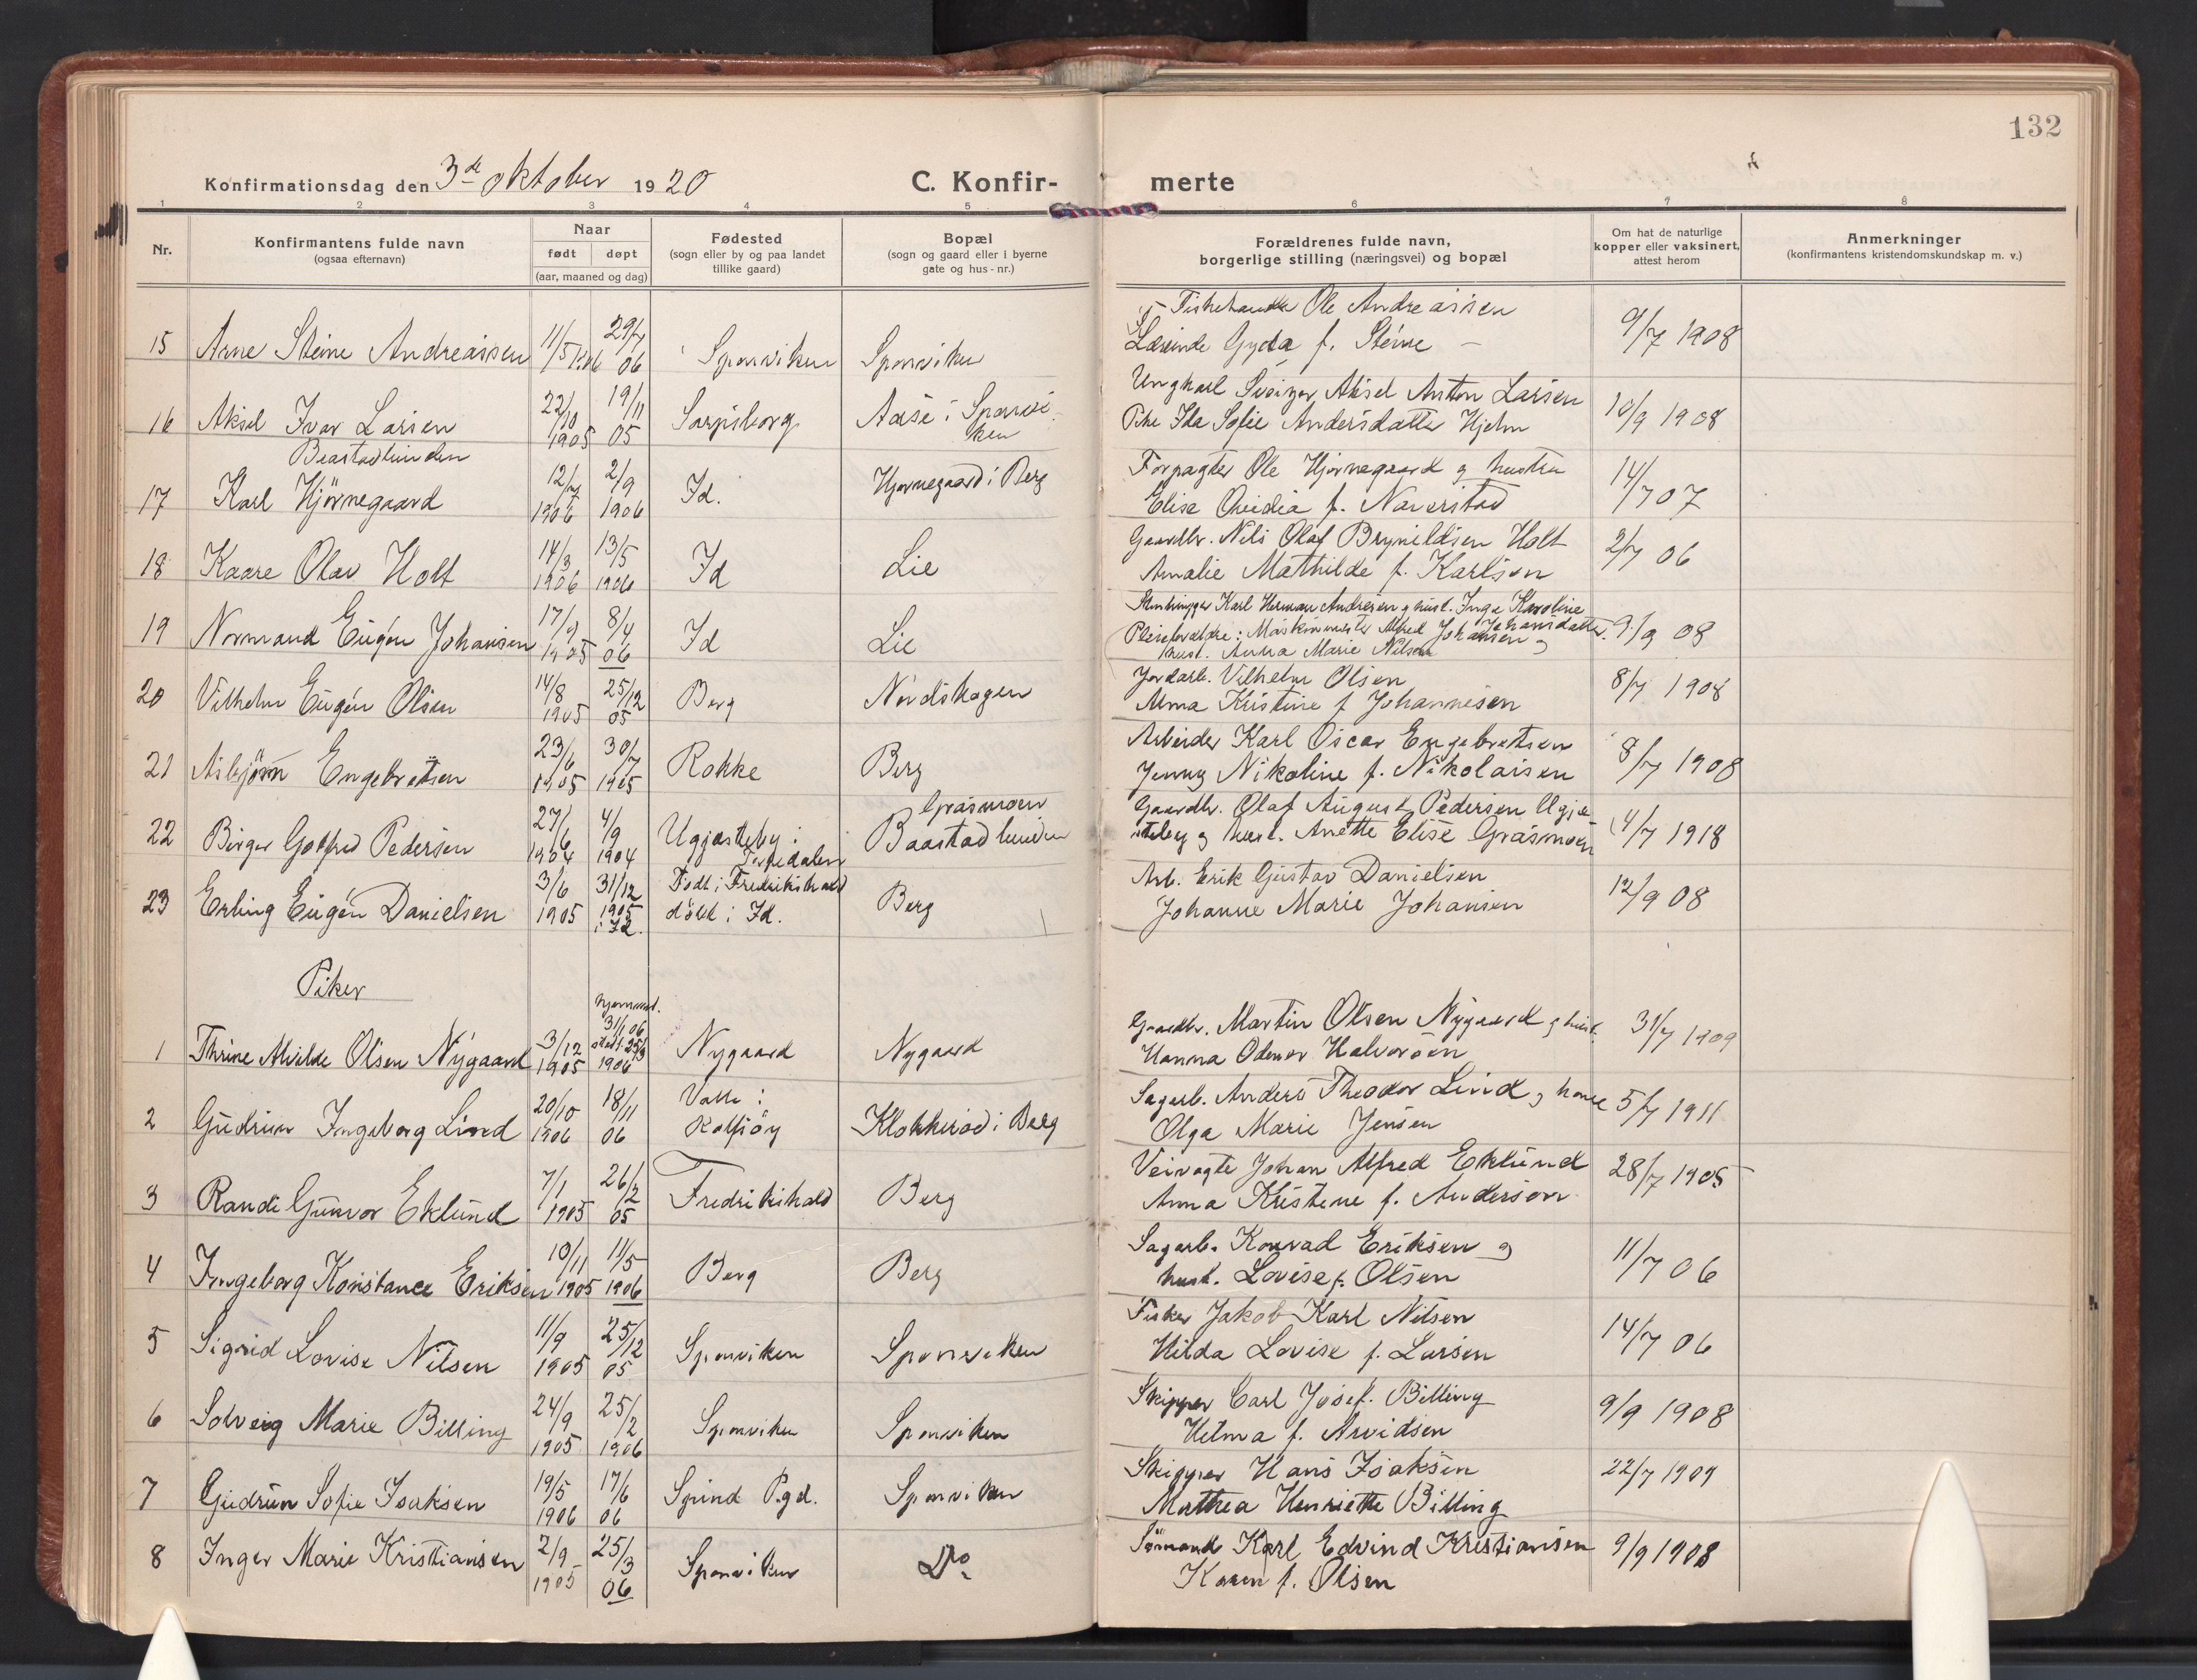 132
Konfirmationsdag den 3de oktober 1920
C. Konfir-
merte
1 2 3 4 5 6 7 8
Nr.
Konfirmantens fulde navn
(ogsaa efternavn)
Naar
født døpt
(aar, maaned og dag)
Fødested
(sogn eller by og paa landet
tillike gaard)
Bopæl
(sogn og gaard eller i byerne
gate og hus-nr.)
Forældrenes fulde navn,
borgerlige stilling (næringsvei) og bopæl
Om hat de naturlige
kopper eller vaksinert,
attest herom
Anmerkninger
(konfirmantens kristendomskundskap m. v.)
15 Arne Steine Andreassen 11/5 1906 29/7 06 Sponviken Sponviken
Ole Andreassen
Gyda f. Steine
9/7 1908
16 Aksel Ivar Larsen 22/10 1905 19/11 05 Sarpsborg Aase i Sponvi-
ken
Ungkarl Aksel Anton Larsen
Pike Ida Sofie Andersdatter Hjelm
10/9 1908
Baastadlunden
17 Karl Hjørnegaard 12/7 1906 2/9 1906 Id. Hjørnegaard i Berg
Forpagter Ole Hjørnegaard og hustru
Elise f. Naverstad
14/7 07
18 Kaare Olav Holt 14/3 1906 13/5 1906 Id Lie
Gaardbr. Nils Olaf Brynildsen Holt
Amalie Mathilde f. Karlsen
2/7 06
19 Normand Eugén Johansen 17/9 1905 8/4 06 Id Lie
Stenhugger Karl Herman Andresen og hust. Inga Karoline
Johansdatter.
Pleieforældre: Maskinmester Alfred Johansen og
hust. Anna Marie Nilsen
9/9 08
20 Vilhelm Eugén Olsen 14/8 1905 25/12 05 Berg Nordskogen
Jordarb. Vilhelm Olsen
Alma Kristine f Johannesen
8/7 1908
21 Asbjörn Engebretsen 23/6 1905 30/7 1905 Rokke Berg
Arbeider Karl Oscar Engebretsen
Jenny Nikoline f. Nikolaisen
8/7 1908
22 Birger Gotfred Pedersen 27/6 1904 4/9 1904 Ugjesteby i
Torpedalen
Gräsmoen
Baastadlunden
Gaardbr. Olaf August Pedersen Ugje-
steby og hust. Anette Elise Gräsmoen
4/7 1918
23 Erling Eugén Danielsen 3/6 1905 31/12 1905 i Id. Födt i Fredrikshald
döbt i Id.
Berg
Arb. Erik Gustav Danielsen
Johanne Marie Johansen
12/9 08
Piker
1 Thrine Alvilde Olsen Nygaard 3/12 1905 hjemmed.
31/1 06
stad. 25/3
1906
Nygaard Nygaard
Gaardbr. Martin Olsen Nygaard og hust.
Hanna Halvorsen
31/7 1909
2 Gudrun Ingeborg Lind 20/10 1906 18/11 06 Valle i
Rolfsöy
Klokkerød i Berg
Sagarb. Anders Theodor Lind og
Olga Marie Jensen
5/7 1911
3 Randi Gunvor Eklund 7/1 1905 26/2 05 Fredrikshald Berg
Veivogter Johan Alfred Eklund
Anna Kristine f. Anderson
28/7 1905
4 Ingeborg Konstance Eriksen 10/11 1905 11/5 1906 Berg Berg
Sagarb. Konrad Eriksen og
hust. Lovise f. Olsen
11/7 06
5 Sigrid Lovise Nilsen 11/9 1905 25/12 05 Sponviken Sponviken
Fisker Jakob Karl Nilsen
Hilda Lovise f. Larsen
14/7 06
6 Solveig Marie Billing 24/9 1905 25/2 1906 Sponviken Sponviken
Skipper Carl Josef. Billing
Helma f. Arvidsen
9/9 1908
7 Gudrun Sofie Isaksen 19/5 1906 17/6 06 Spind P.gd. Sponviken
Skipper Hans Isaksen
Mathea Henriette Billing
22/7 1909
8 Inger Marie Kristiansen 2/9 1905 25/3 06 Sponviken Do.
Sömand Karl Edvind Kristiansen
Karen f. Olsen
9/9 1908